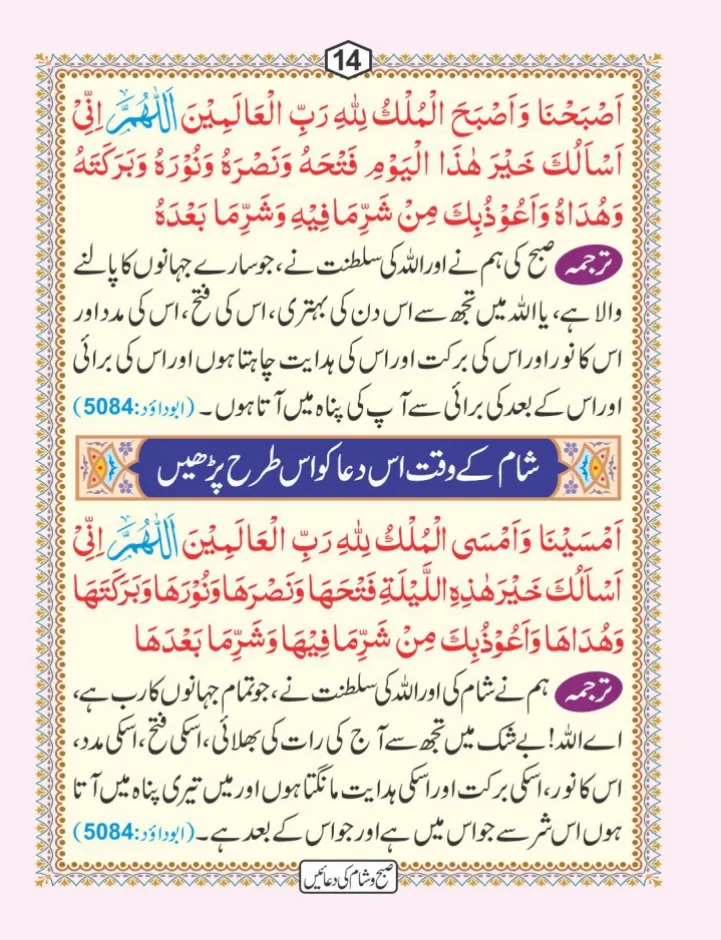 14
اَصْبَحْنَا وَاَصْبَحَ الْمُلْكُ لِلّٰهِ رَبِّ الْعَالَمِيْنَ اَللّٰهُمَّ اِنِّيْ
اَسْاَلُكَ خَيْرَ هٰذَا الْيَوْمِ فَتْحَهُ وَنَصْرَهُ وَنُوْرَهُ وَبَرَكَتَهُ
وَهُدَاهُ وَاَعُوْذُبِكَ مِنْ شَرِّمَا فِيْهِ وَشَرِّمَا بَعْدَهُ
ترجمہ صبح کی ہم نے اور اللہ کی سلطنت نے، جو سارے جہانوں کا پالنے
والا ہے، یا اللہ میں تجھ سے اس دن کی بہتری، اس کی فتح، اس کی مدد اور
اس کا نور اور اس کی برکت اور اس کی ہدایت چاہتا ہوں اور اس کی برائی
اور اس کے بعد کی برائی سے آپ کی پناہ میں آتا ہوں۔ (ابوداؤد:5084)
شام کے وقت اس دعا کو اس طرح پڑھیں
اَمْسَيْنَا وَاَمْسَى الْمُلْكُ لِلّٰهِ رَبِّ الْعَالَمِيْنَ اَللّٰهُمَّ اِنِّيْ
اَسْاَلُكَ خَيْرَ هٰذِهِ اللَّيْلَةِ فَتْحَهَا وَنَصْرَهَا وَنُوْرَهَا وَبَرَكَتَهَا
وَهُدَاهَا وَاَعُوْذُبِكَ مِنْ شَرِّمَا فِيْهَا وَشَرِّمَا بَعْدَهَا
ترجمہ ہم نے شام کی اور اللہ کی سلطنت نے، جو تمام جہانوں کا رب ہے،
اے اللہ! بے شک میں تجھ سے آج کی رات کی بھلائی، اسکی فتح، اسکی مدد،
اس کا نور، اسکی برکت اور اسکی ہدایت مانگتا ہوں اور میں تیری پناہ میں آتا
ہوں اس شر سے جو اس میں ہے اور جو اس کے بعد ہے۔ (ابوداؤد:5084)
صبح و شام کی دعائیں